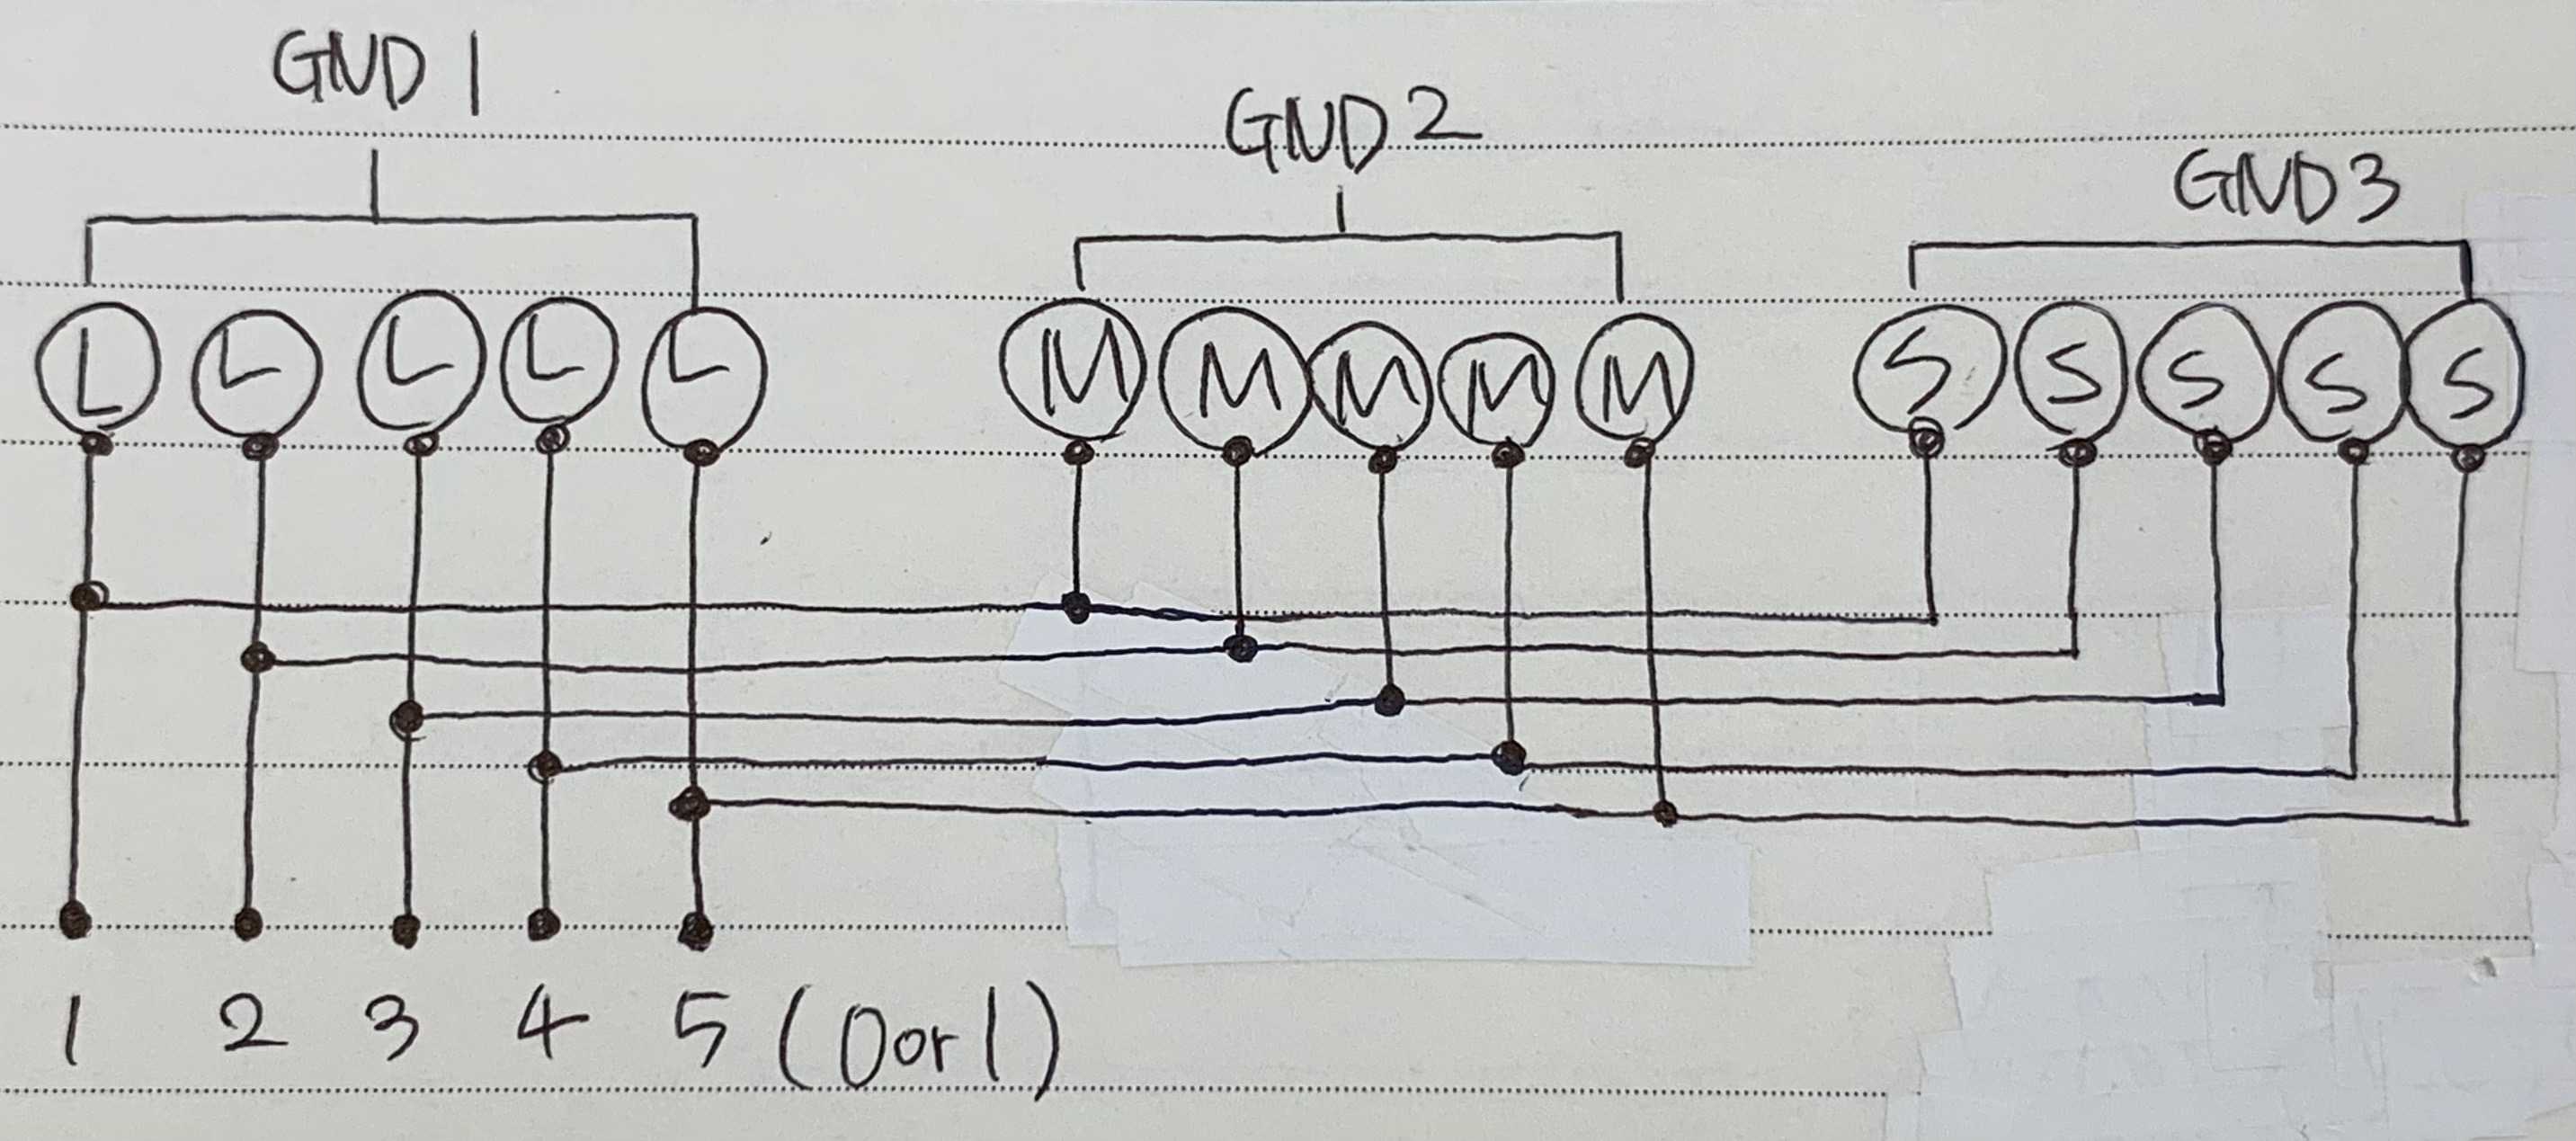 GND 1
GND 2
GND 3
L L L L L M M M M M S S S S S
1 2 3 4 5 (0 or 1)